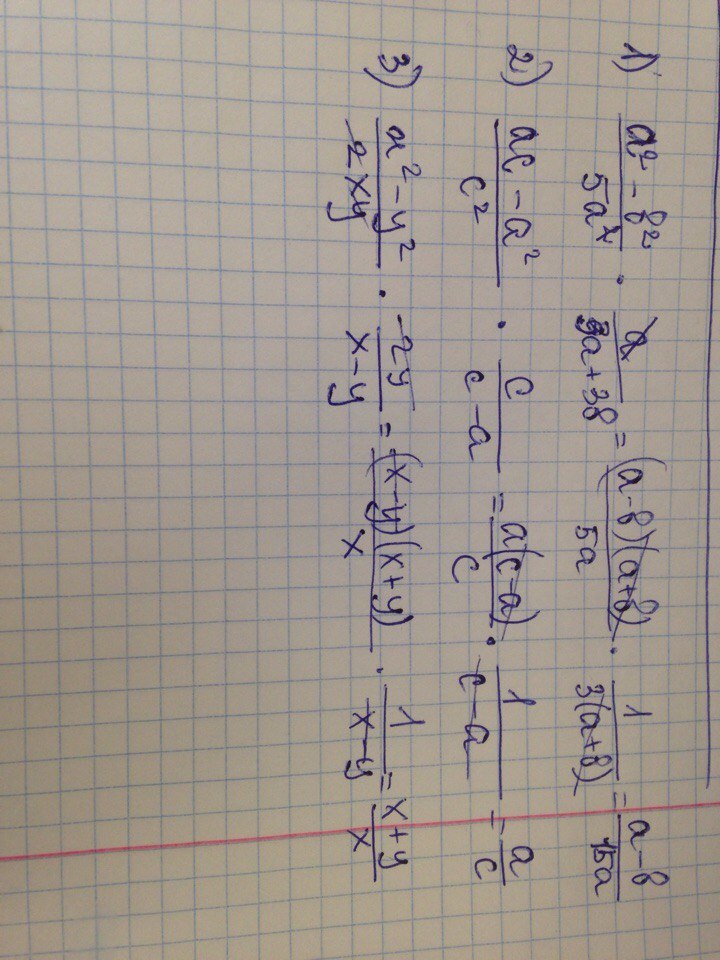 1) (a² - b²)/(5a²) · a/(3a+3b) = ((a-b)(a+b))/(5a) · 1/(3(a+b)) = (a-b)/(15a)
2) (ac - a²)/(c²) · c/(c-a) = (a(c-a))/c · 1/(c-a) = a/c
3) (a² - y²)/(2xy) · 2y/(x-y) = ((x-y)(x+y))/x · 1/(x-y) = (x+y)/x